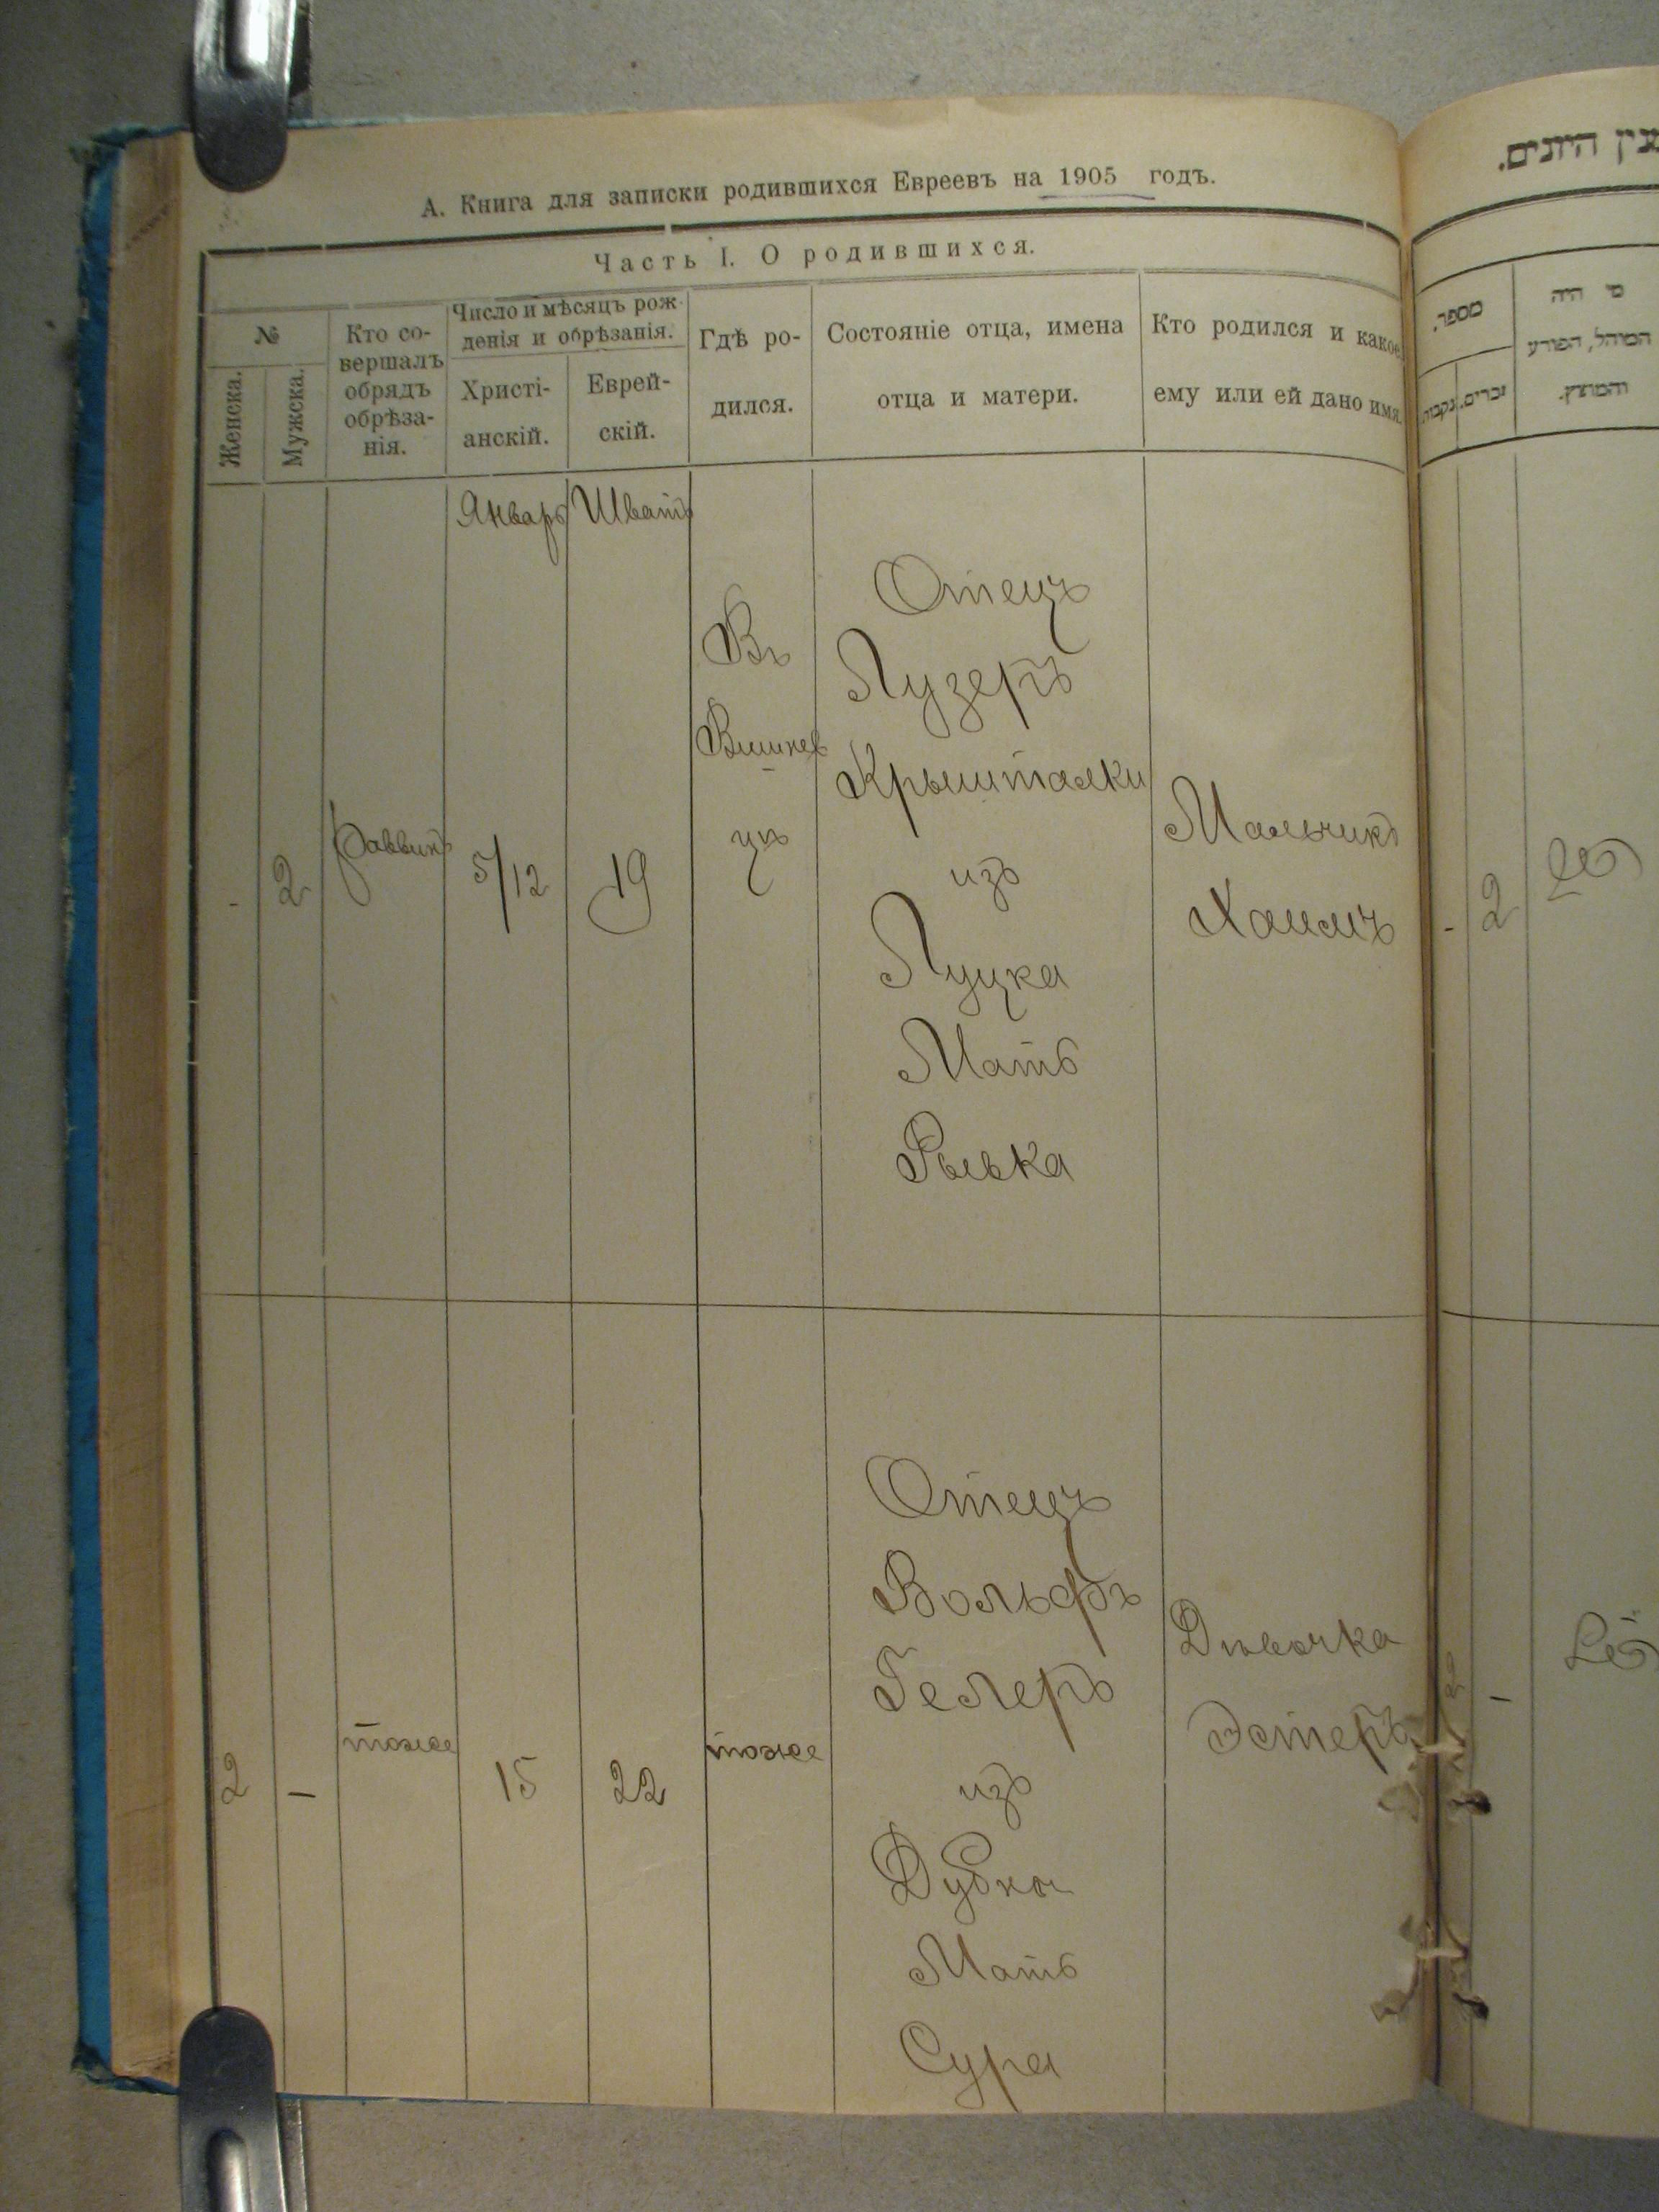 А. Книга для записки родившихся Евреевъ на 1905 годъ.
Часть I. О родившихся.
№
Женска.
Мужска.
Кто со-
вершалъ
обрядъ
обрѣза-
нія.
Число и мѣсяцъ рож
денія и обрѣзанія.
Христі-
анскій.
Еврей-
скій.
Гдѣ ро-
дился.
Состояніе отца, имена
отца и матери.
Кто родился и какое
ему или ей дано имя.
Январь Шватъ
-
2
Раввинъ
5/12
19
Въ
Вишнев
цѣ
Отецъ
Лузеръ
Крышталки
изъ
Луцка
Мать
Рывка
Мальчикъ
Хаимъ
2
-
тоже
15
22
тоже
Отецъ
Вольфъ
Гелеръ
изъ
Дубна
Мать
Сура
Дѣвочка
Эстеръ
היונים.
מספר.
נקבות
זכרים.
מי היה
המוהל, הפורע
והמוצץ.
- 2
-